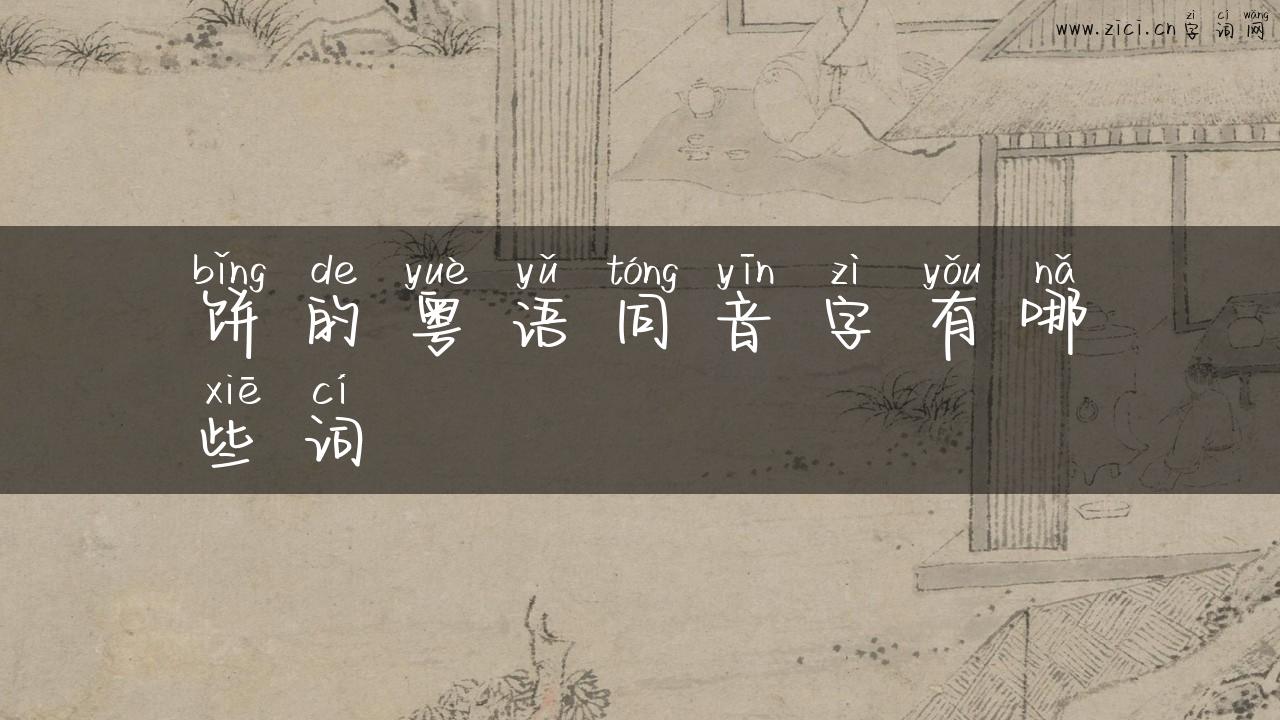 zì cí wǎng
www.zici.cn 字词网
bǐng de yuè yǔ tóng yīn zì yǒu nǎ
饼的粤语同音字有哪
xiē cí
些词